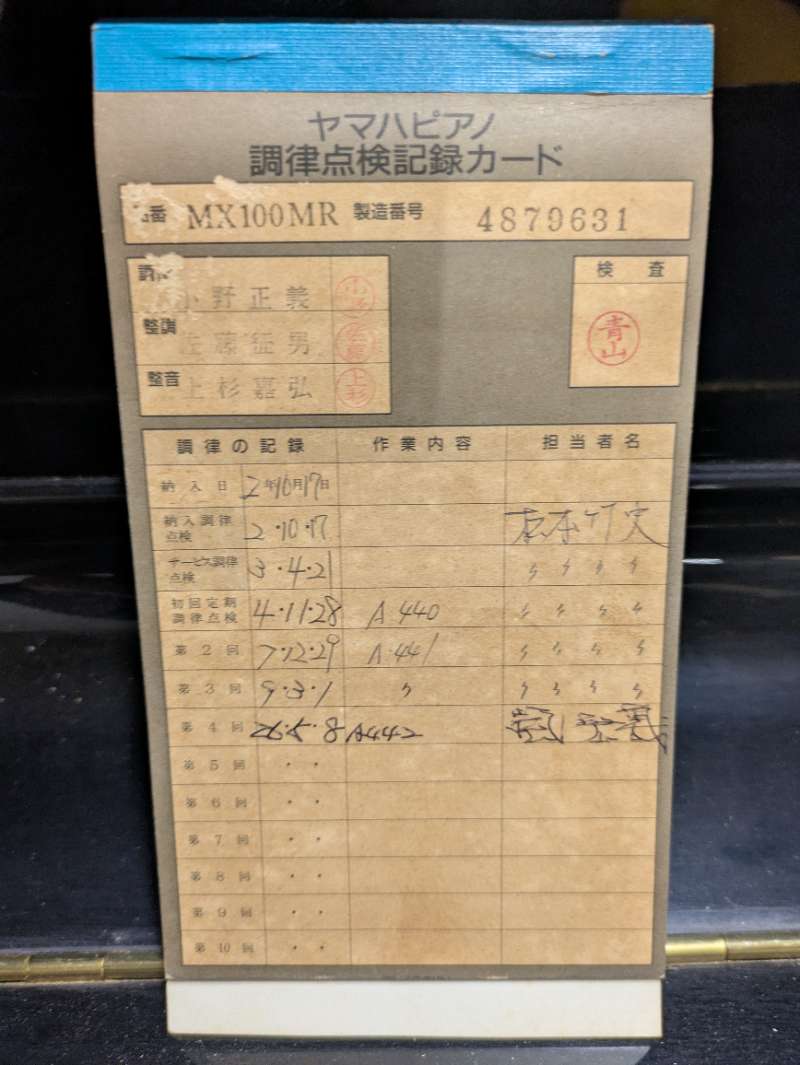 ヤマハピアノ
調律点検記録カード
番 MX100MR 製造番号 4879631
調 小野正義
整調 佐藤征男
整音 上杉嘉弘 上杉
検査
青山
調律の記録 作業内容 担当者名
納入日 2年10月17日
納入調律点検 2・10・17
サービス調律点検 3・4・21 〃 〃 〃 〃
初回定期調律点検 4・11・28 A440 〃 〃 〃 〃
第2回 7・12・29 A・441 〃 〃 〃 〃
第3回 9・3・1 〃 〃 〃 〃 〃
第4回 26・5・8 A442
第5回 ・ ・
第6回 ・ ・
第7回 ・ ・
第8回 ・ ・
第9回 ・ ・
第10回 ・ ・